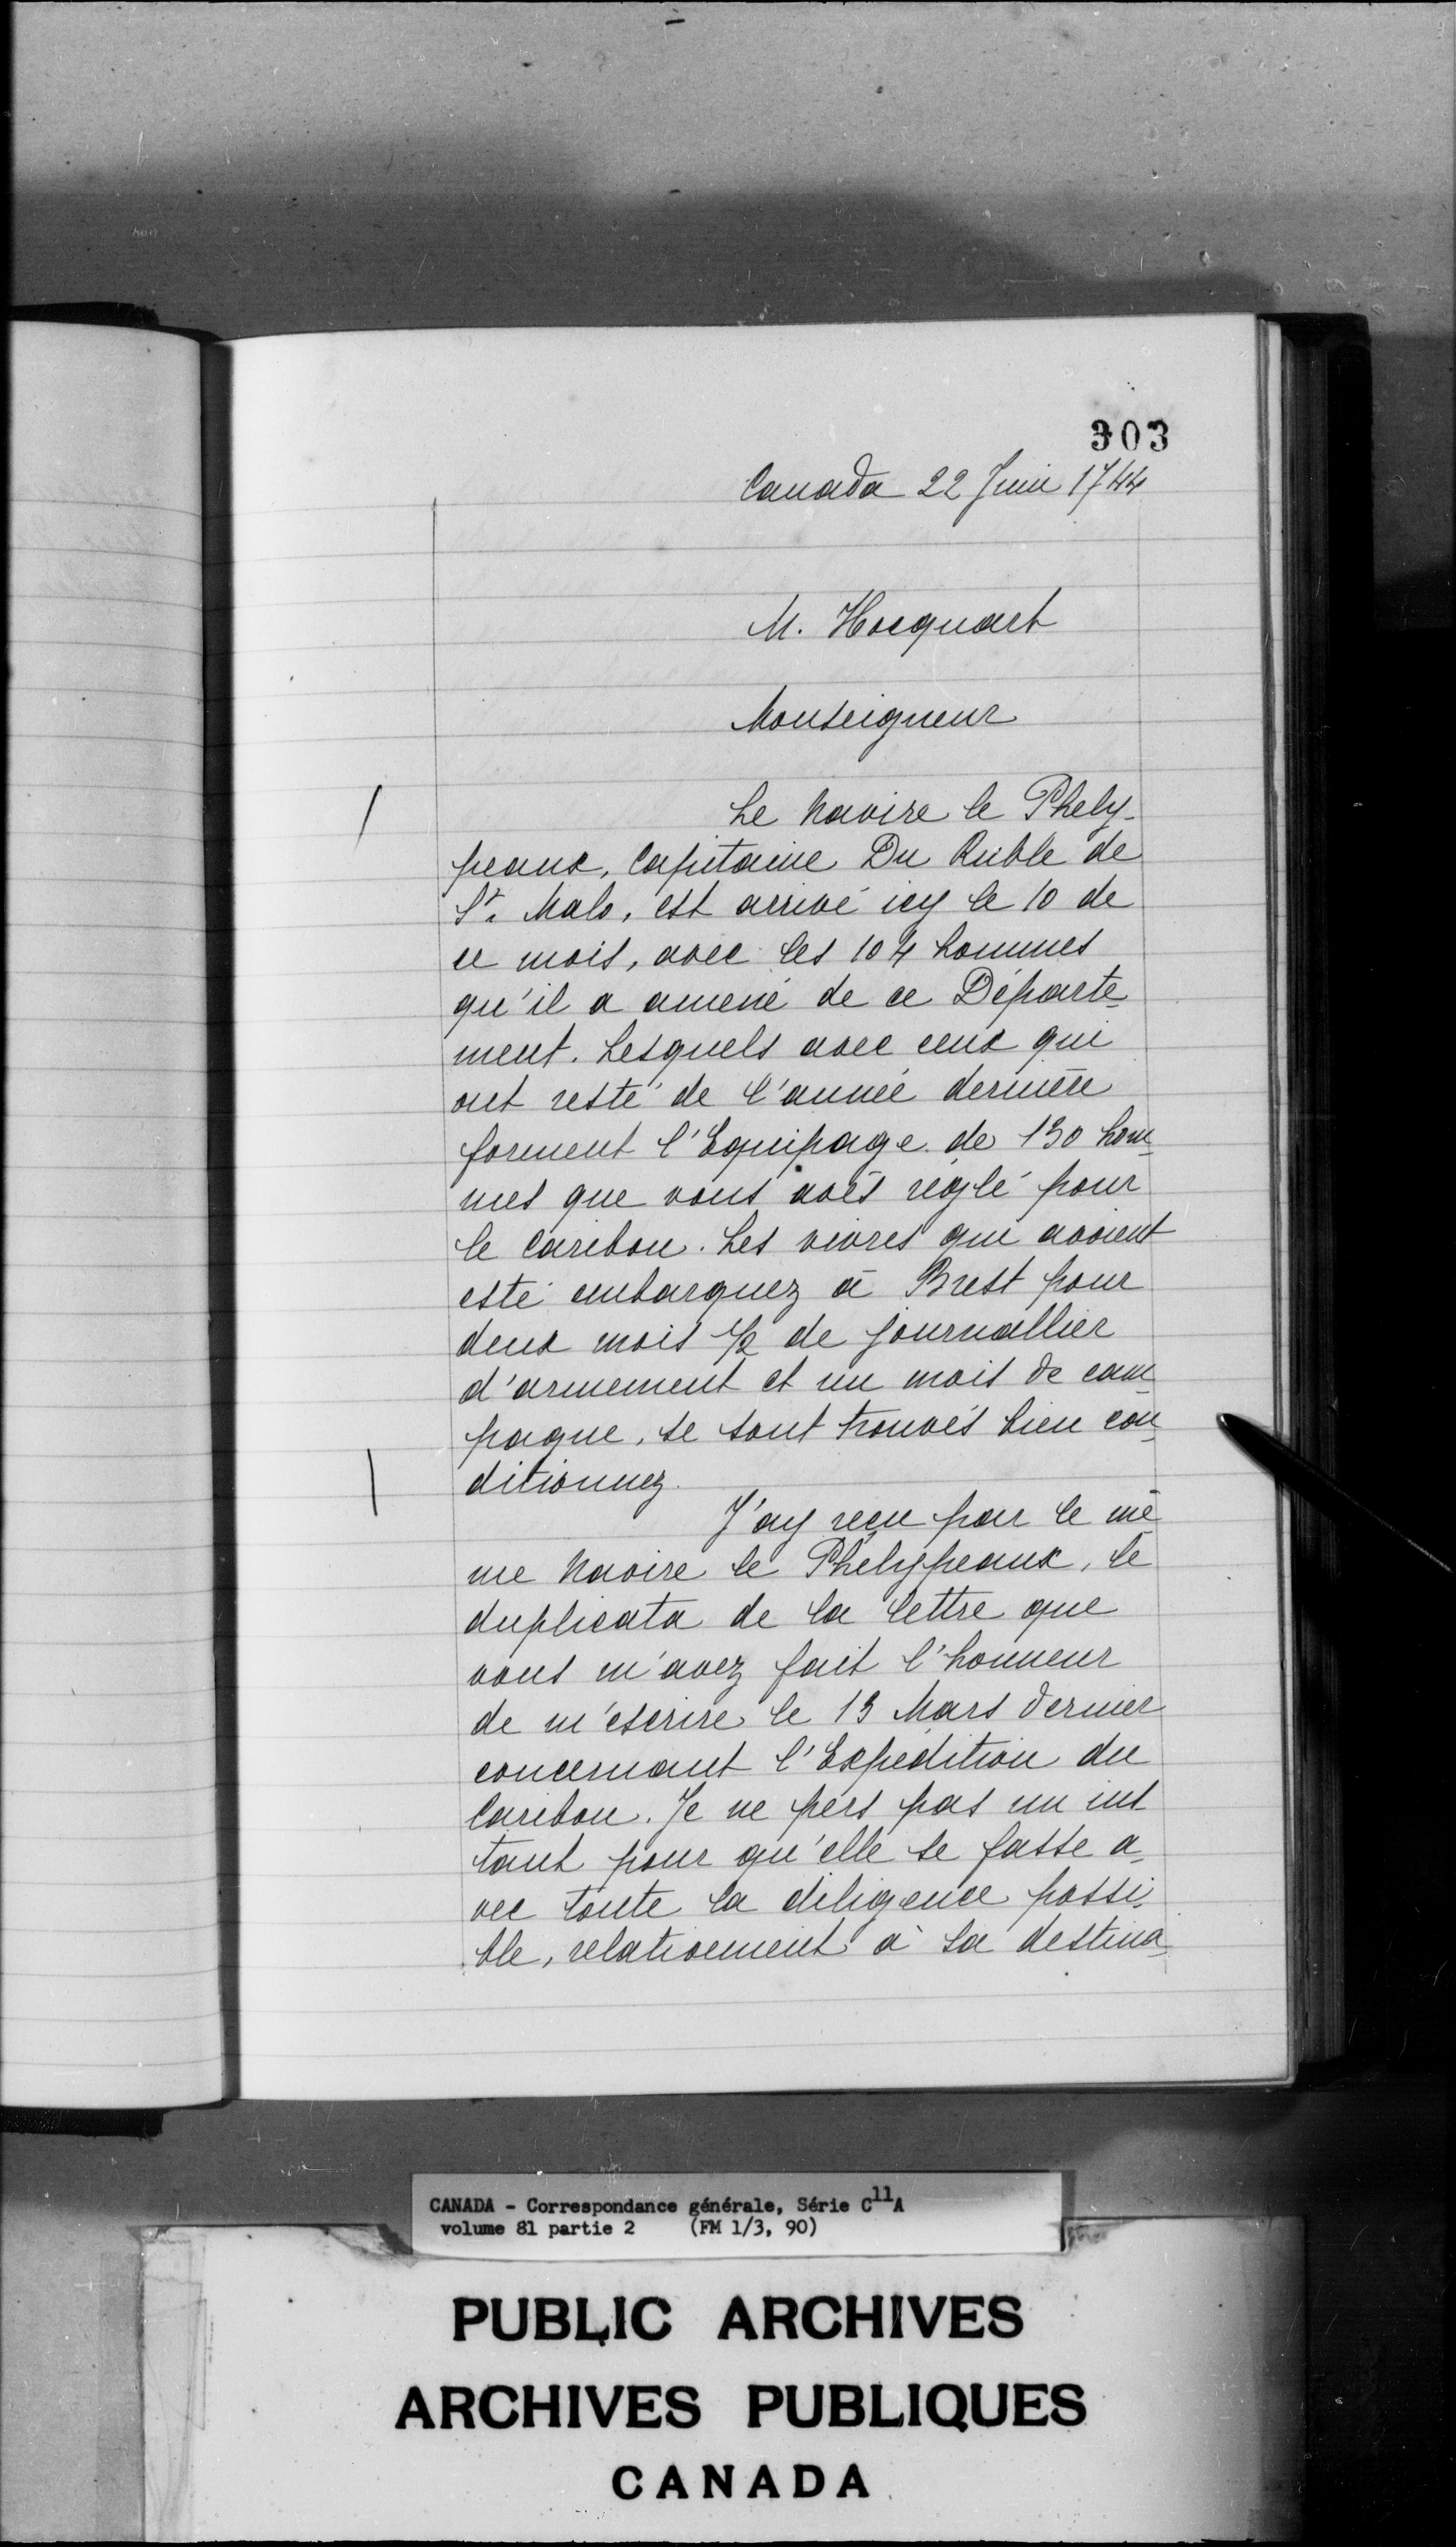 303
Canada 22 Juin 1744
M. Hocquart
Monseigneur
Le Navire le Phely-
peaux, Capitaine Du Ruble de
St. Malo, est arrivé icy le 10 de
ce mois, avec les 104 hommes
qu'il a amené de ce Départe-
ment. Lesquels avec ceux qui
ont resté de l'année dernière
forment l'Equipage de 130 hom-
mes que vous avés réglé pour
le Caribou. Les vivres qui avoient
esté embarquez à Brest pour
deux mois 1/2 de journallier
d'armement et un mois de cam-
pagne, se sont trouvés bien con-
ditionnez.
J'ay reçu par le mê
me Navire le Phelypeaux, le
duplicata de la lettre que
vous m'avez fait l'honneur
de m'escrire le 13 Mars dernier
concernant l'Expédition du
Caribou. Je ne pers pas un ins
tant pour qu'elle se fasse a-
vec toute la diligence possi-
ble, relativement à sa destina-
CANADA - Correspondance générale, Série C11A
volume 81 partie 2 (FM 1/3, 90)
PUBLIC ARCHIVES
ARCHIVES PUBLIQUES
CANADA